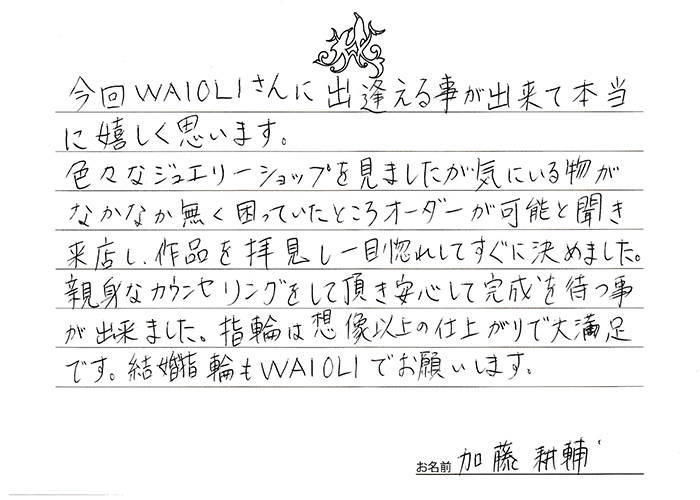 今回WAIOLIさんに出逢える事が出来て本当
に嬉しく思います。
色々なジュエリーショップを見ましたが気にいる物が
なかなか無く困っていたところオーダーが可能と聞き
来店し、作品を拝見し一目惚れしてすぐに決めました。
親身なカウンセリングをして頂き安心して完成を待つ事
が出来ました。指輪は想像以上の仕上がりで大満足
です。結婚指輪もWAIOLIでお願いします。
お名前 加藤耕輔